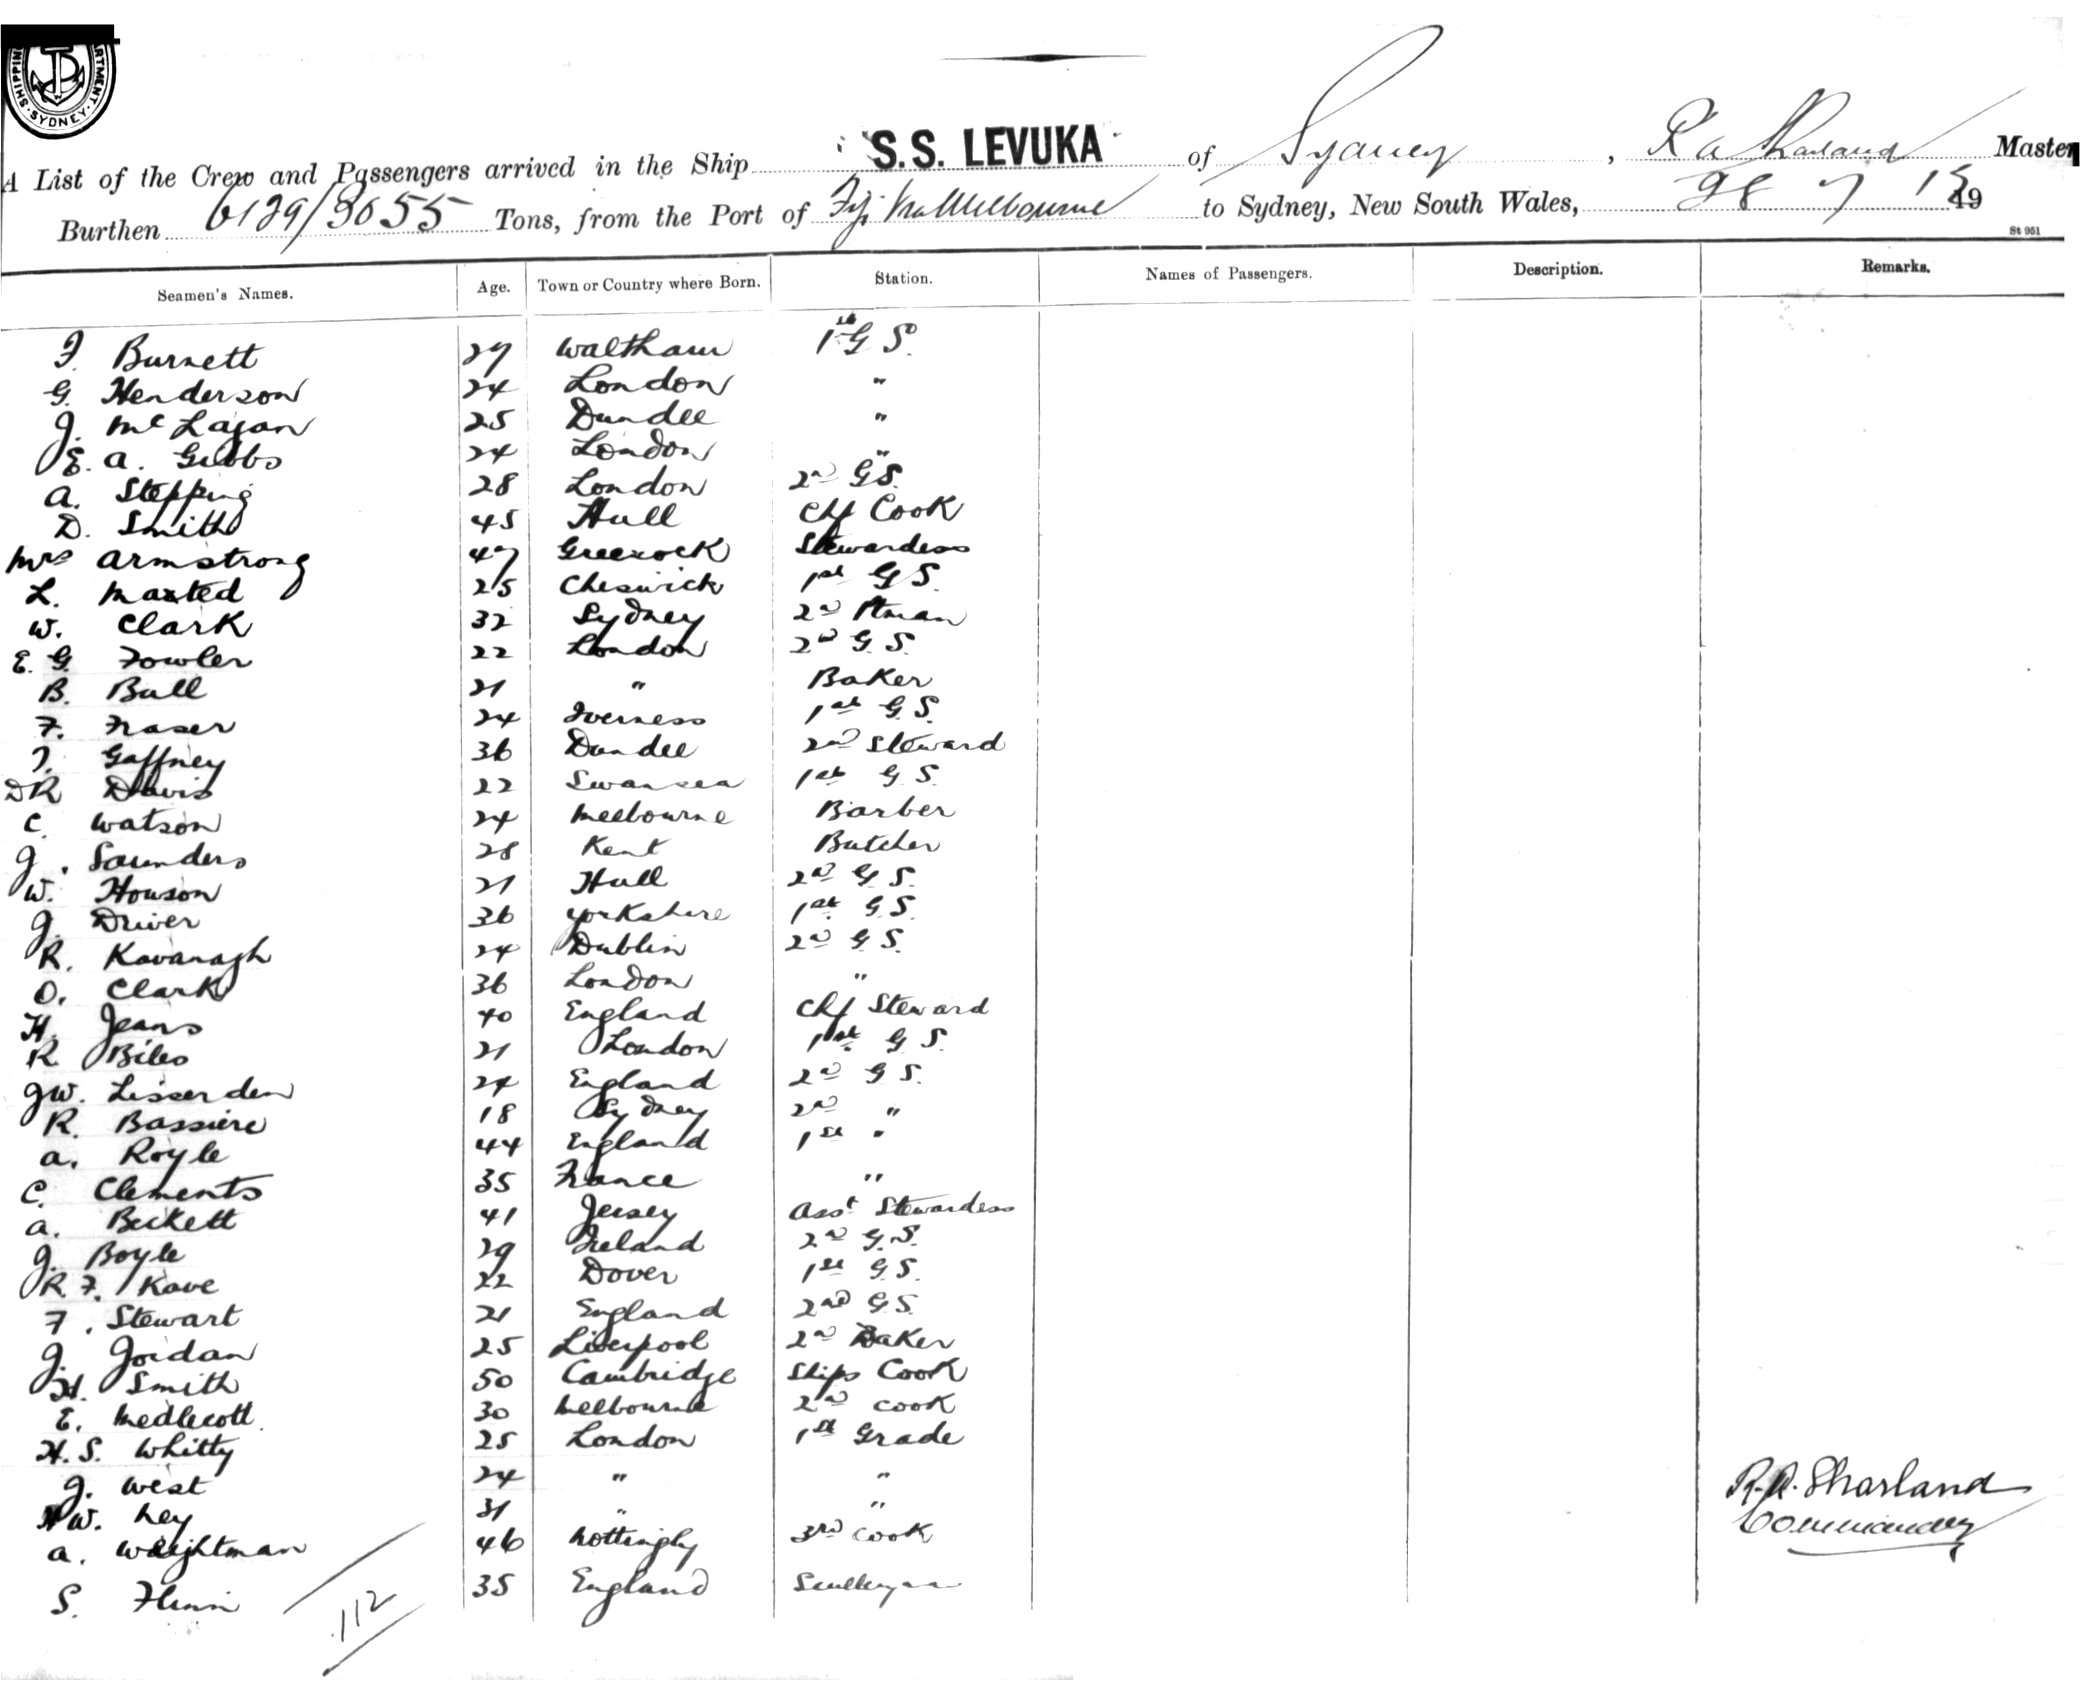 SHIPPING DEPARTMENT. SYDNEY
A List of the Crew and Passengers arrived in the Ship S.S. LEVUKA of Sydney, R A Sharland Master
Burthen 6129/3055 Tons, from the Port of Fiji via Melbourne to Sydney, New South Wales, 28 7 19
St 951
Seamen's Names. Age. Town or Country where Born. Station. Names of Passengers. Description. Remarks.
Burnett 27 Waltham 1st G S.
G. Henderson 24 London "
J. McLagan 25 Dundee "
E. A. Gibbs 24 London "
A. Stepping 28 London 2nd G S.
D. Smith 45 Hull Chf Cook
Mrs Armstrong 47 Greenock Stewardess
L. Maxted 25 Cheswick 1st G S.
W. Clark 32 Sydney 2nd Ptman
E. G. Fowler 22 London 2nd G. S.
B. Bull 21 " Baker
F. Fraser 24 Iverness 1st G. S.
T. Gaffney 36 Dundee 2nd Steward
D R Davis 22 Swansea 1st G S.
C. Watson 24 Melbourne Barber
J. Saunders 28 Kent Butcher
W. Howson 21 Hull 2nd G S.
J. Driver 36 Yorkshire 1st G. S.
R. Kavanagh 24 Dublin 2nd G S.
O. Clark 36 London "
H. Jeans 40 England Chf Steward
R Biles 21 London 1st G S.
J W. Lissenden 24 England 2nd G S.
R. Bassiere 18 Sydney 2nd "
A. Royle 44 England 1st "
C. Clements 35 France "
A. Beckett 41 Jersey Asst Stewardess
J. Boyle 29 Ireland 2nd G. S.
R. F. Kave 22 Dover 1st G. S.
F. Stewart 21 England 2nd G S.
J. Jordan 25 Liverpool 2nd Baker
H. Smith 50 Cambridge Ships Cook
E. Medlecott 30 Melbourne 2nd Cook
H. S. Whitty 25 London 1st Grade
J. West 24 " "
W. Ley 31 " "
A. Weightman 46 Nottingly 3rd Cook
S. Flinn 35 England
112
R. A. Sharland
Commander